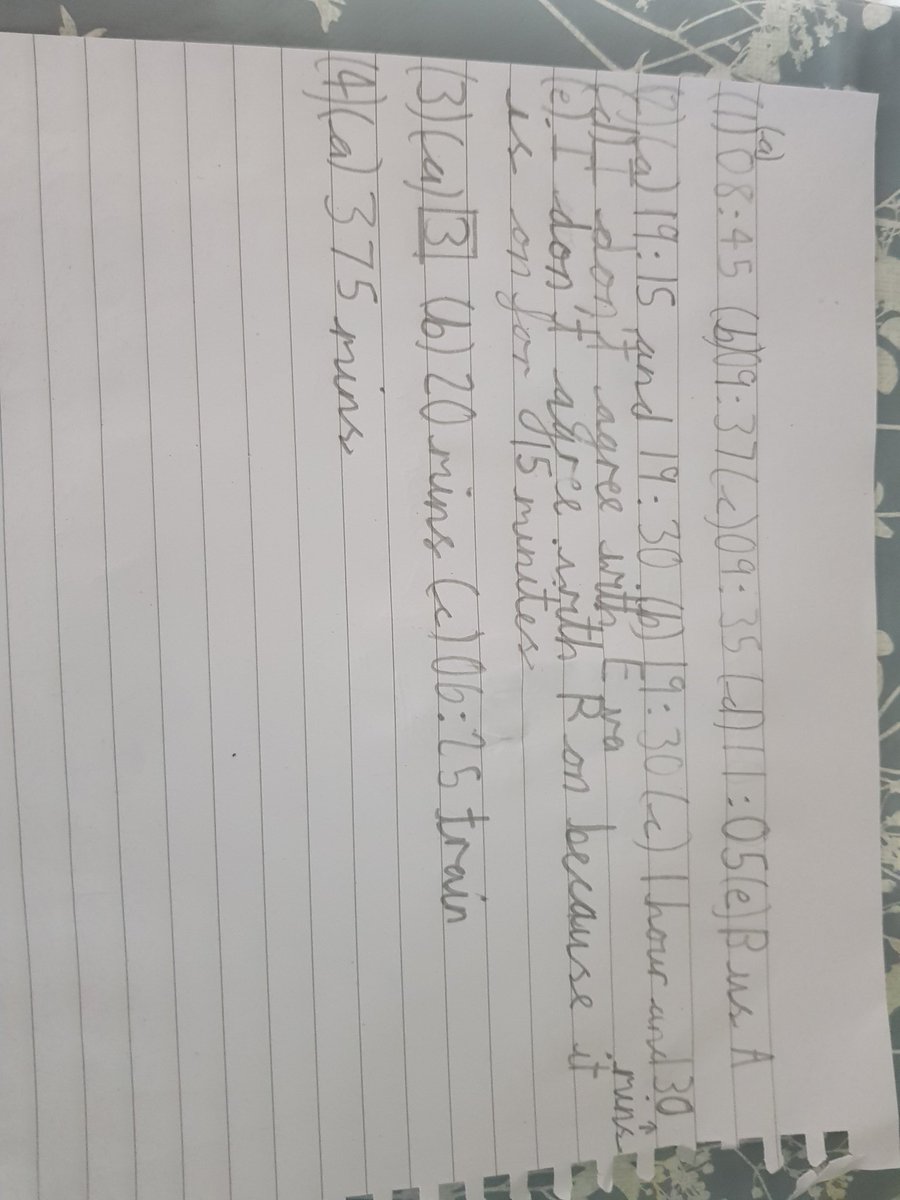 (1)(a) 08:45 (b) 09:37 (c) 09:35 (d) 11:05 (e) Bus A
(2)(a) 19:15 and 19:30 (b) 19:30 (c) 1 hour and 30 mins
(d) I don't agree with Eva
(e). I don't agree with Ron because it
is on for 15 minutes
(3)(a) 3 (b) 20 mins (c) 06:25 train
(4)(a) 375 mins